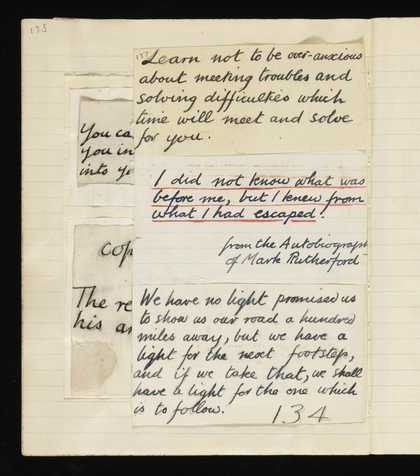 135
137
Learn not to be over-anxious
about meeting troubles and
solving difficulties which
time will meet and solve
for you.
You ca
you in
into yo
I did not know what was
before me, but I knew from
what I had escaped!
from the Autobiograph
of Mark Rutherford
cop
The re
his an
We have no light promised us
to show us our road a hundred
miles away, but we have a
light for the next footstep,
and if we take that, we shall
have a light for the one which
is to follow.
134